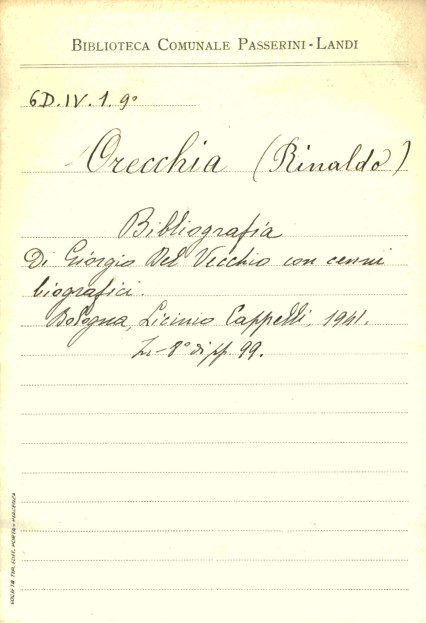 BIBLIOTECA COMUNALE PASSERINI-LANDI
6D.IV.1.9°
Orecchia (Rinaldo)
Bibliografia
Di Giorgio Del Vecchio con cenni
biografici.
Bologna, Licinio Cappelli, 1941.
In-8° di pp. 99.